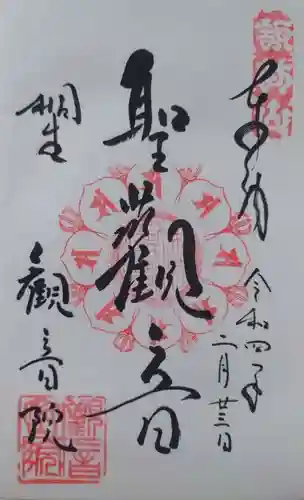 奉拝
令和四年
二月廿三日
聖観音
桐生
観音院